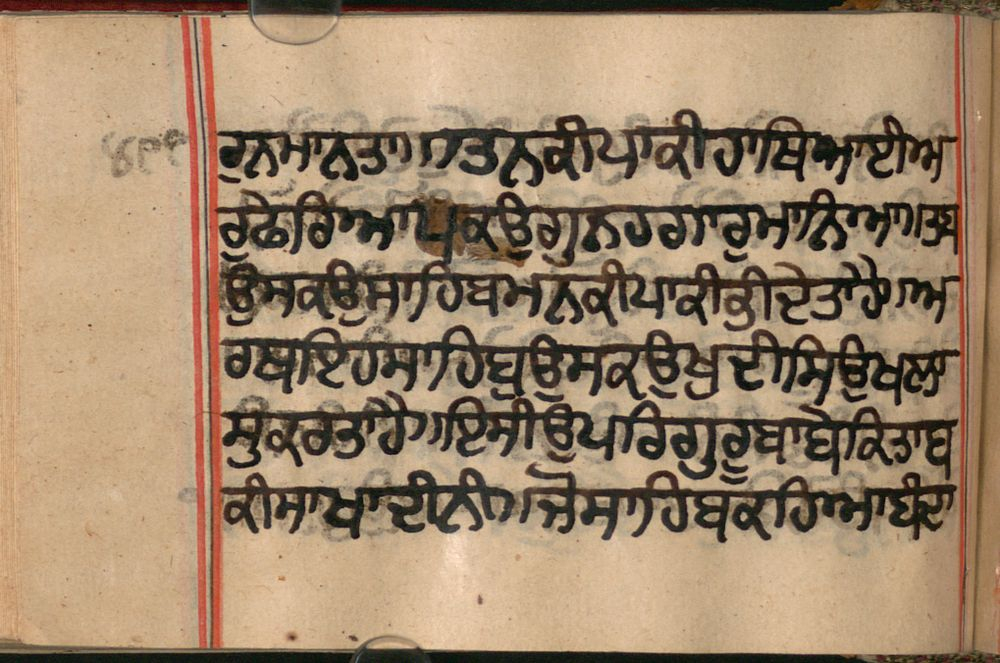 ਰੁਨਮਾਨਤਾ॥ਤਨਕੀਪਾਕੀਹਾਥਿਆਈਅ
ਰੁਫੇਰਿਆਪਕਉਗੁਨਹਗਾਰੁਮਾਨਿਆ॥ਤਬ
ਉਸਕਉਸਾਹਿਬਮਨਕੀਪਾਕੀਭੀਦੇਤਾਹੈ॥ਅ
ਰਥਾਇਹਸਾਹਿਬੁਉਸਕਉਖੁਦੀਸਿਉਖਲਾ
ਸੁਕਰਤਾਹੈ॥ਇਸੀਊਪਰਿਗੁਰੂਬਾਬੇਕਿਤਾਬ
ਕੀਸਾਖਾਦੀਨੀ॥ਜੋਸਾਹਿਬਕਹਿਆਬੰਦਾ